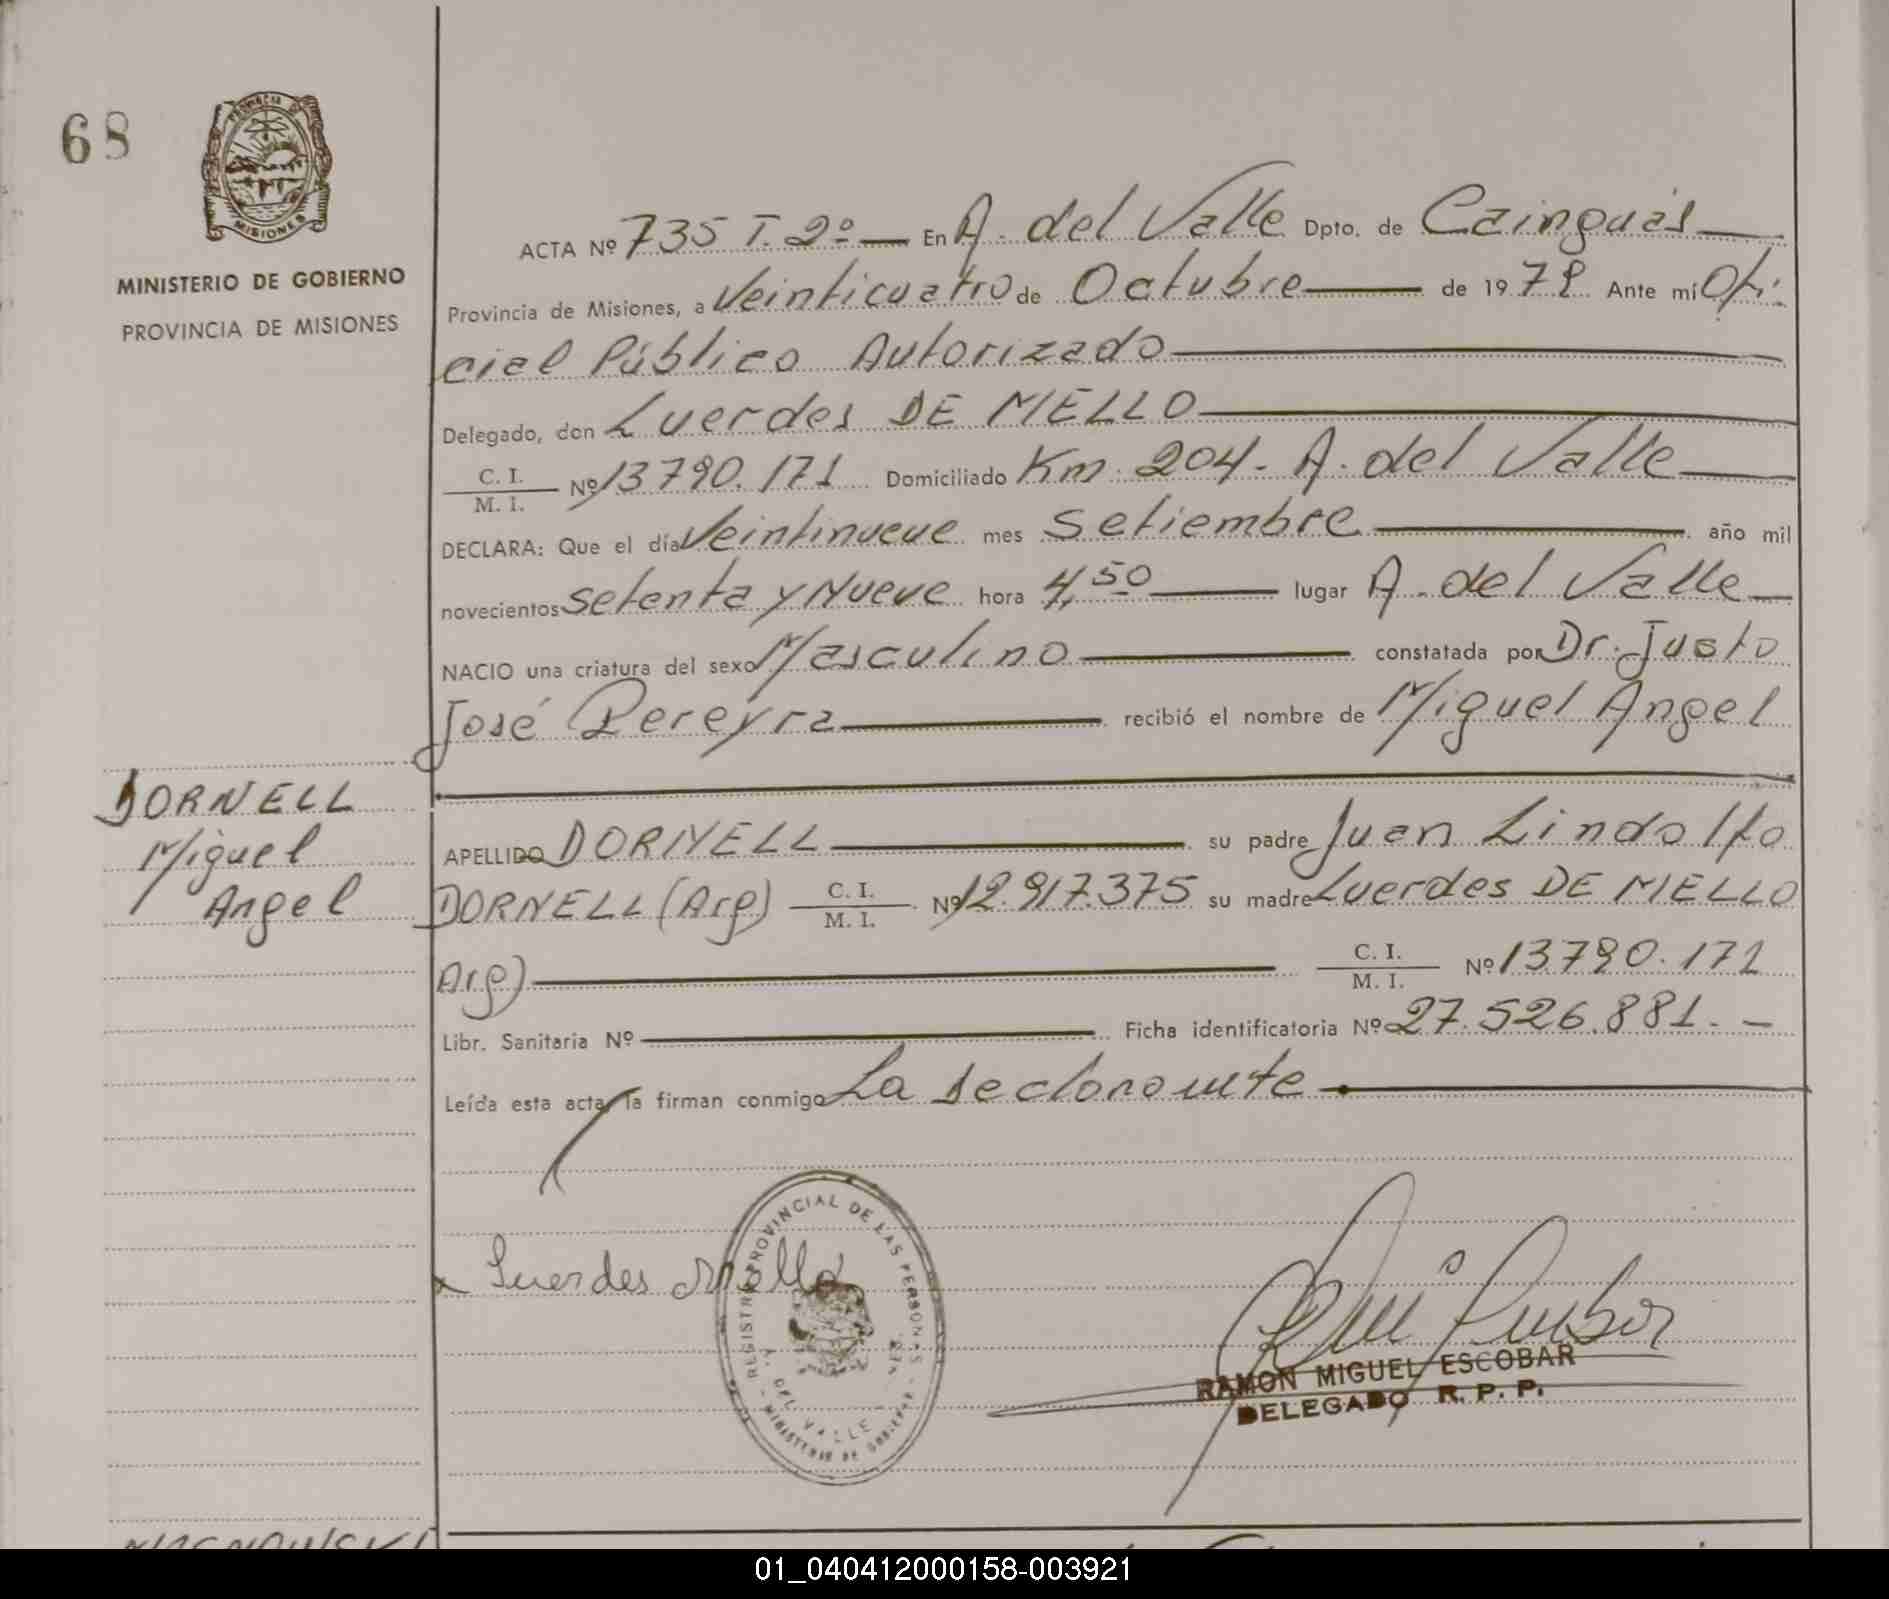 68
PROVINCIA DE
MISIONES
MINISTERIO DE GOBIERNO
PROVINCIA DE MISIONES
ACTA Nº 735 T. 2º — En A. del Valle Dpto. de Cainguás
Provincia de Misiones, a Veinticuatro de Octubre de 1979 Ante mí Ofi-
cial Público Autorizado
Delegado, don Luerdes DE MELLO
C. I. / M. I. Nº 13790.171 Domiciliado Km. 204. A. del Valle
DECLARA: Que el día Veintinueve mes Setiembre año mil
novecientos Setenta y Nueve hora 4,50 lugar A. del Valle
NACIO una criatura del sexo Masculino constatada por Dr. Justo
José Pereyra recibió el nombre de Miguel Angel
DORNELL
Miguel
Angel
APELLIDO DORNELL su padre Juan Lindolfo
DORNELL (Arg) C. I. / M. I. Nº 12.917.375 su madre Luerdes DE MELLO
Arg) C. I. / M. I. Nº 13790.171
Libr. Sanitaria Nº Ficha identificatoria Nº 27.526.881. —
Leída esta acta, la firman conmigo La declarante
x Luerdes Mello
REGISTRO PROVINCIAL DE LAS PERSONAS
A. DEL VALLE
MINISTERIO DE GOBIERNO
RAMON MIGUEL ESCOBAR
DELEGADO R. P. P.
01_040412000158-003921